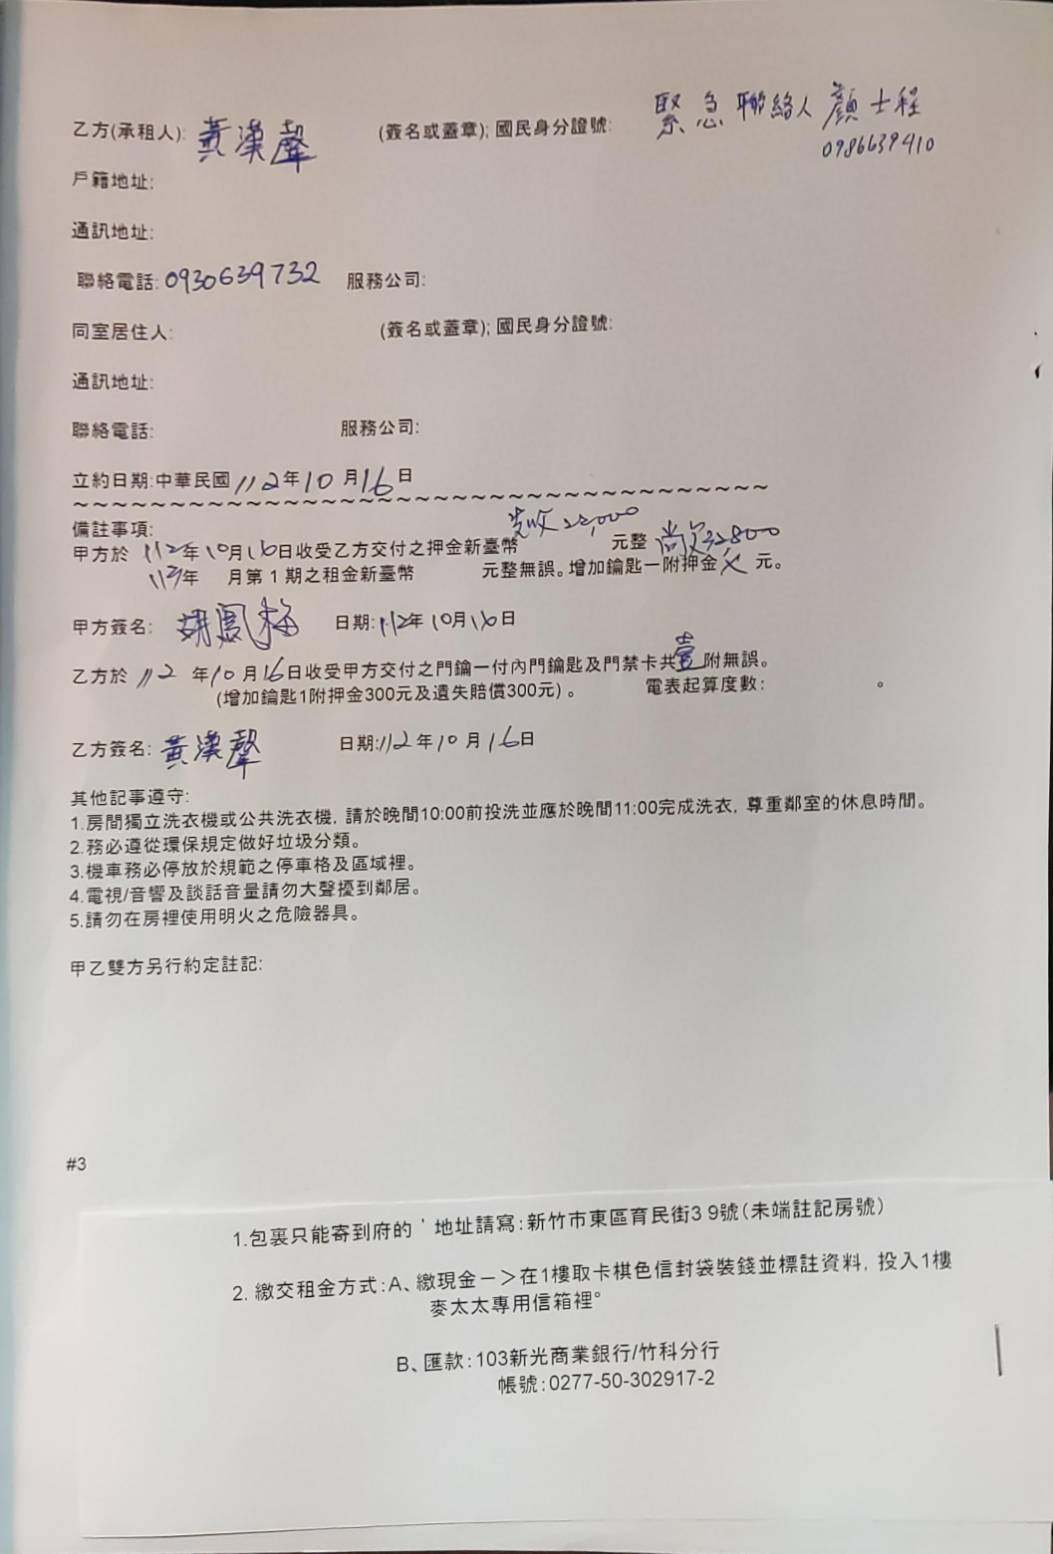 緊急聯絡人 顏士程
0986639410
乙方(承租人): 黃漢聲 (簽名或蓋章); 國民身分證號:
戶籍地址:
通訊地址:
聯絡電話: 0930639732 服務公司:
同室居住人: (簽名或蓋章); 國民身分證號:
通訊地址:
聯絡電話: 服務公司:
立約日期:中華民國 112年10月16日
~~~~~~~~~~~~~~~~~~~~~~~~~~~~~~~~~~~~
備註事項:
甲方於 112年10月16日收受乙方交付之押金新臺幣 先收22,000 元整 尚欠32800
112年 月第1期之租金新臺幣 元整無誤。增加鑰匙一附押金 元。
甲方簽名: 胡鳳梅 日期:112年10月16日
乙方於 112 年10月16日收受甲方交付之門鑰一付內門鑰匙及門禁卡共壹附無誤。
(增加鑰匙1附押金300元及遺失賠償300元)。 電表起算度數: 。
乙方簽名: 黃漢聲 日期:112年10月16日
其他記事遵守:
1.房間獨立洗衣機或公共洗衣機, 請於晚間10:00前投洗並應於晚間11:00完成洗衣, 尊重鄰室的休息時間。
2.務必遵從環保規定做好垃圾分類。
3.機車務必停放於規範之停車格及區域裡。
4.電視/音響及談話音量請勿大聲擾到鄰居。
5.請勿在房裡使用明火之危險器具。
甲乙雙方另行約定註記:
#3
1.包裹只能寄到府的‵地址請寫:新竹市東區育民街3 9號(未端註記房號)
2. 繳交租金方式:A、繳現金－＞在1樓取卡棋色信封袋裝錢並標註資料, 投入1樓
麥太太專用信箱裡。
B、匯款:103新光商業銀行/竹科分行
帳號:0277-50-302917-2